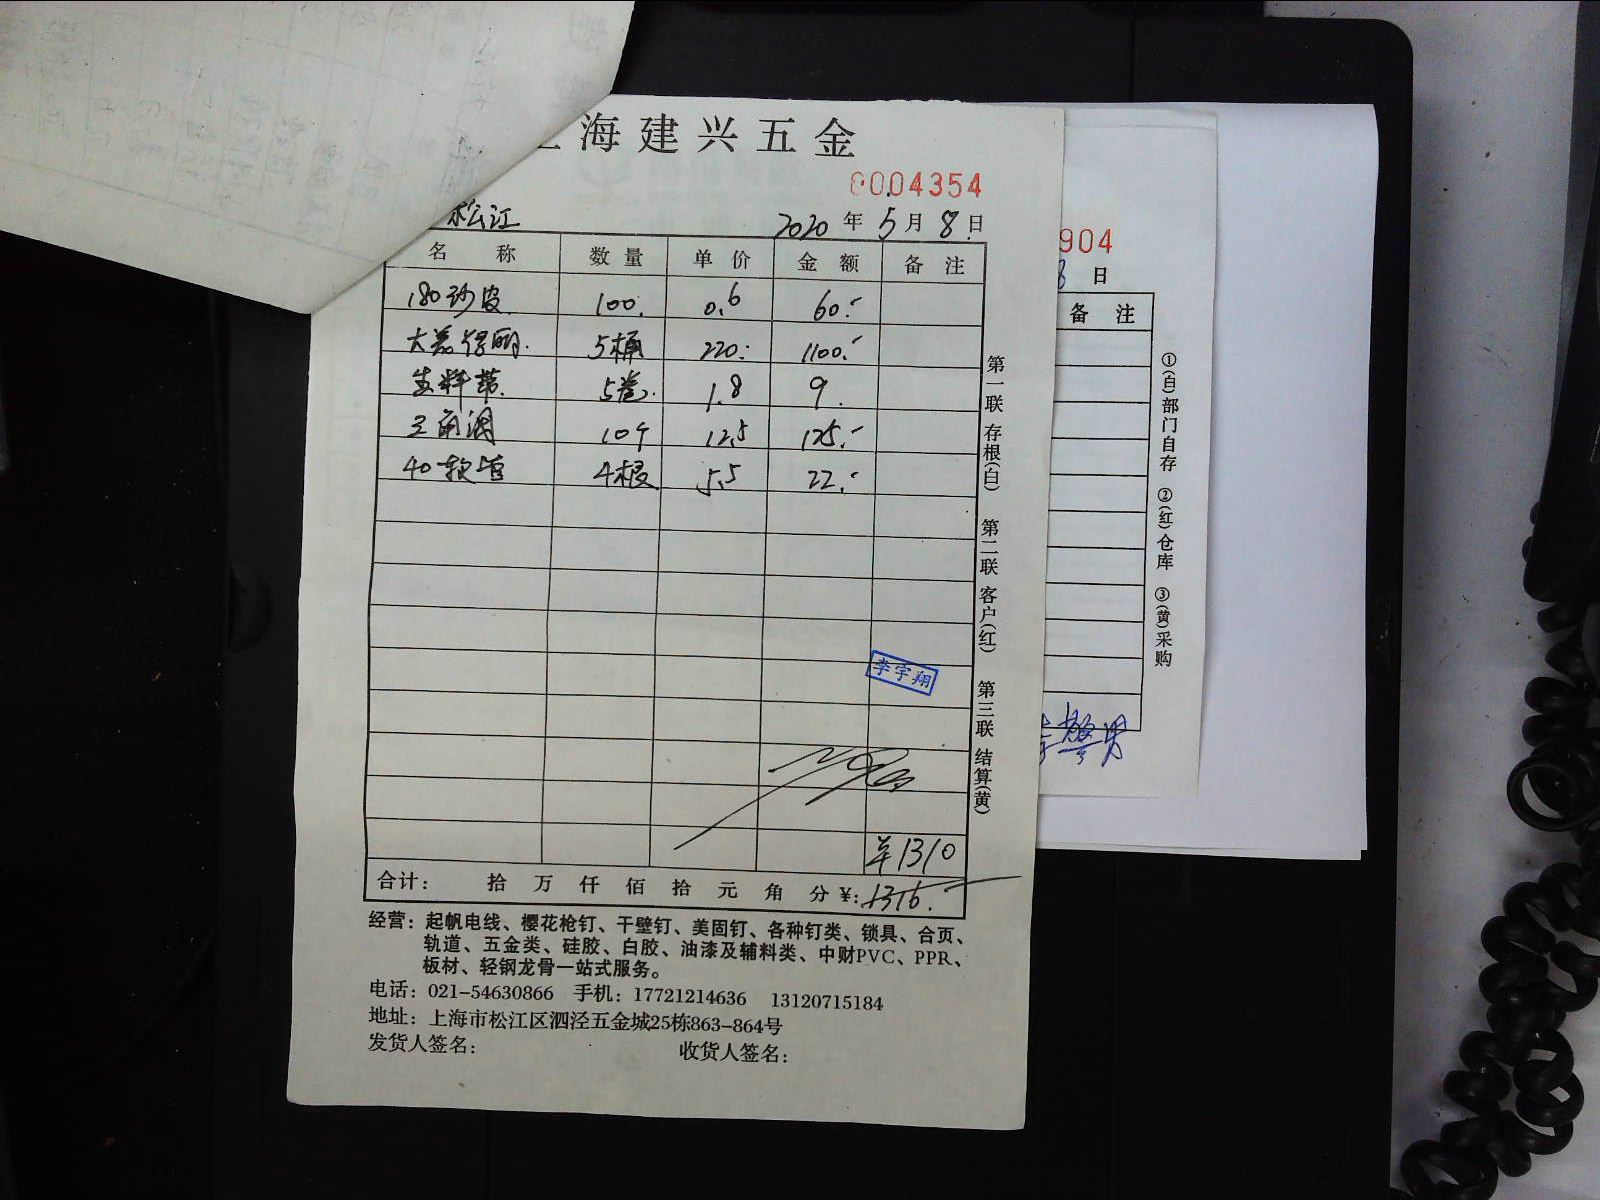 海建兴五金
0004354
松江 2020年5月8日
名称 数量 单价 金额 备注
180砂皮 100. 0.6 60.-
5桶 220. 1100.-
生料带. 5卷. 1.8 9.
三角阀 10个 12.5 125.-
40软管 4根 5.5 22.-
李宇翔
¥1310
合计: 拾 万 仟 佰 拾 元 角 分 ¥: 1316.
经营: 起帆电线、樱花枪钉、干壁钉、美固钉、各种钉类、锁具、合页、
轨道、五金类、硅胶、白胶、油漆及辅料类、中财PVC、PPR、
板材、轻钢龙骨一站式服务。
电话: 021-54630866 手机: 17721214636 13120715184
地址: 上海市松江区泗泾五金城25栋863-864号
发货人签名: 收货人签名:
第一联 存根(白) 第二联 客户(红) 第三联 结算(黄)
904
8日
备注
①(白)部门自存 ②(红)仓库 ③(黄)采购